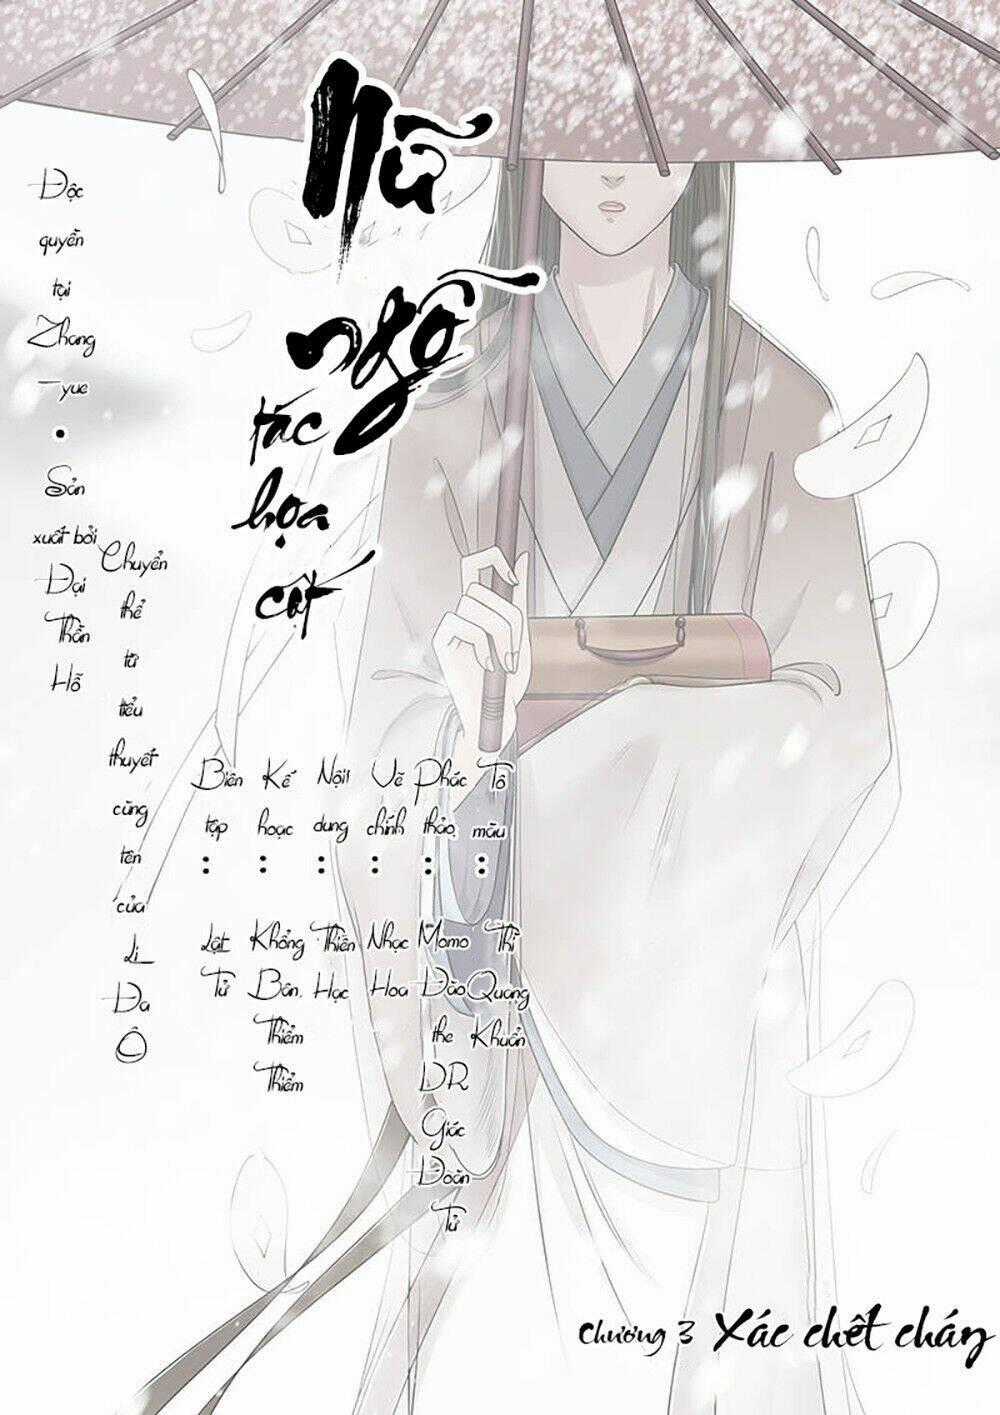 Nữ
ngỗ
tác
họa
cốt
Độc
quyền
tại
Zhang
-yue
•
Sản
xuất bởi
Đại
Thần
Hỗ
Chuyển
thể
từ
tiểu
thuyết
cùng
tên
của
Li
Đa
Ô
Biên
tập
:
Lật
Tử
Kế
hoạc
:
Khổng
Bân,
Thiểm
Thiểm
Nội
dung
:
Thiên
Hạc
Vẽ
chính
:
Nhạc
Hoa
Phác
thảo
:
Momo
Đào
the
DR
Giác
Đoàn
Tử
Tô
màu
:
Thì
Quang
Khuẩn
Chương 3 Xác chết cháy